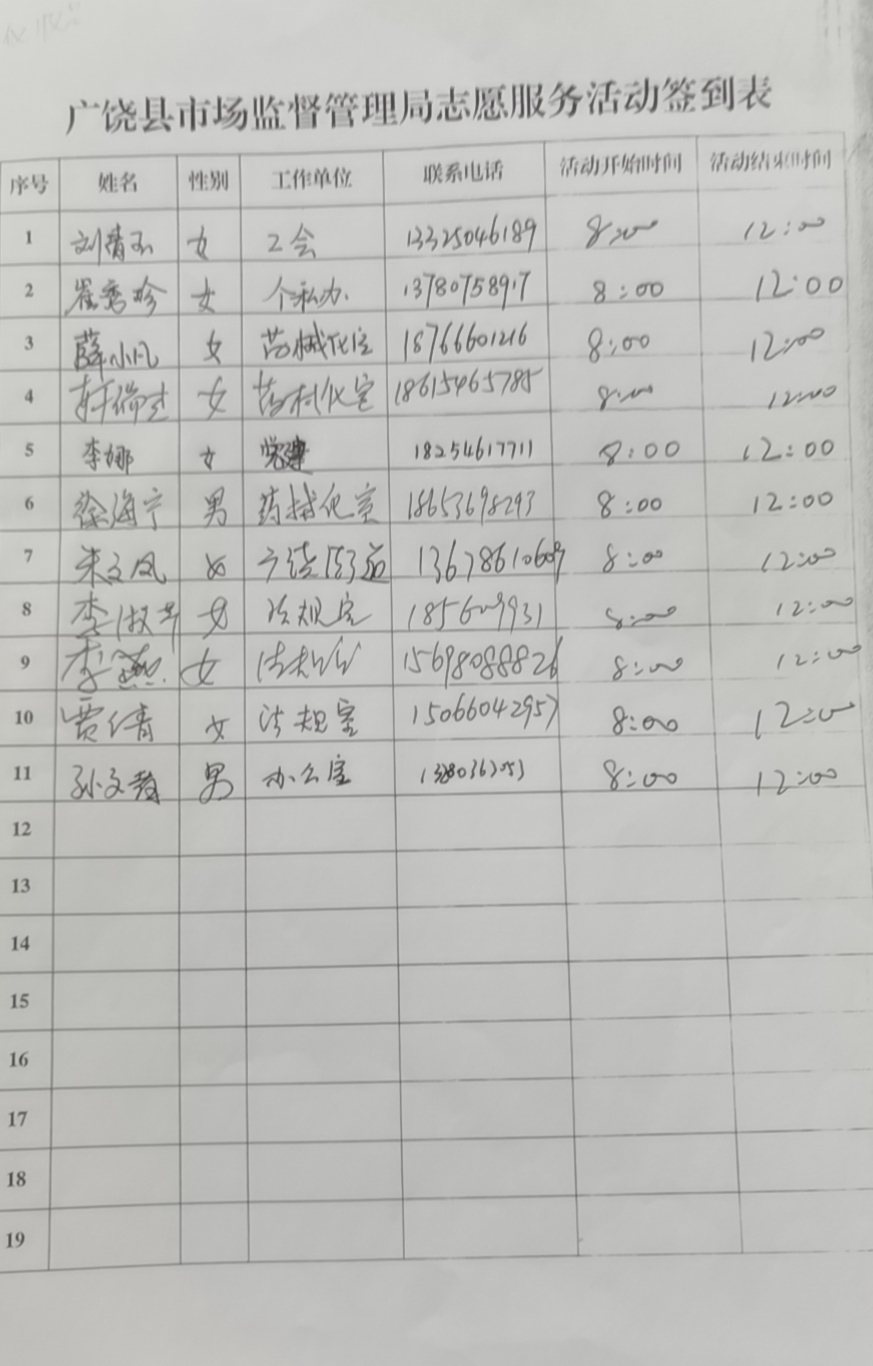 广饶县市场监督管理局志愿服务活动签到表
序号 姓名 性别 工作单位 联系电话 活动开始时间 活动结束时间
1 女 工会 13325046189 8:00 12:00
2 崔秀珍 女 个私办 13780758917 8:00 12:00
3 薛小凡 女 药械化室 18766601216 8:00 12:00
4 女 药械化室 18615465785 8:00 12:00
5 李娜 女 党建 18254617711 8:00 12:00
6 徐海宁 男 药械化室 18653698293 8:00 12:00
7 朱文凤 女 13678610609 8:00 12:00
8 李淑 女 法规室 8:00 12:00
9 李燕 女 法规室 15698088826 8:00 12:00
10 贾倩 女 法规室 15066042957 8:00 12:00
11 孙文 男 办公室 8:00 12:00
12
13
14
15
16
17
18
19